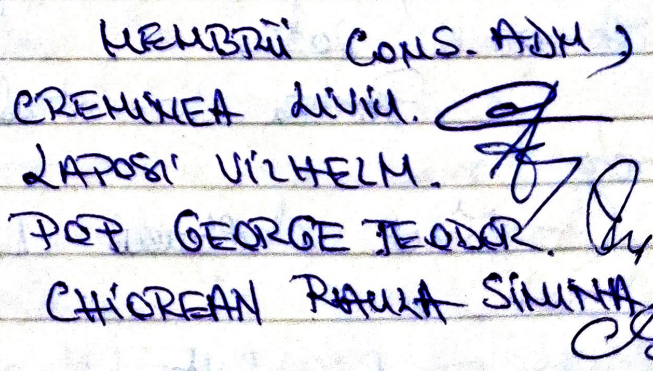 MEMBRII CONS. ADM,
CREMINEA LIVIU.
LAPOSI VILHELM.
POP GEORGE TEODOR.
CHIOREAN PAULA SIMINA